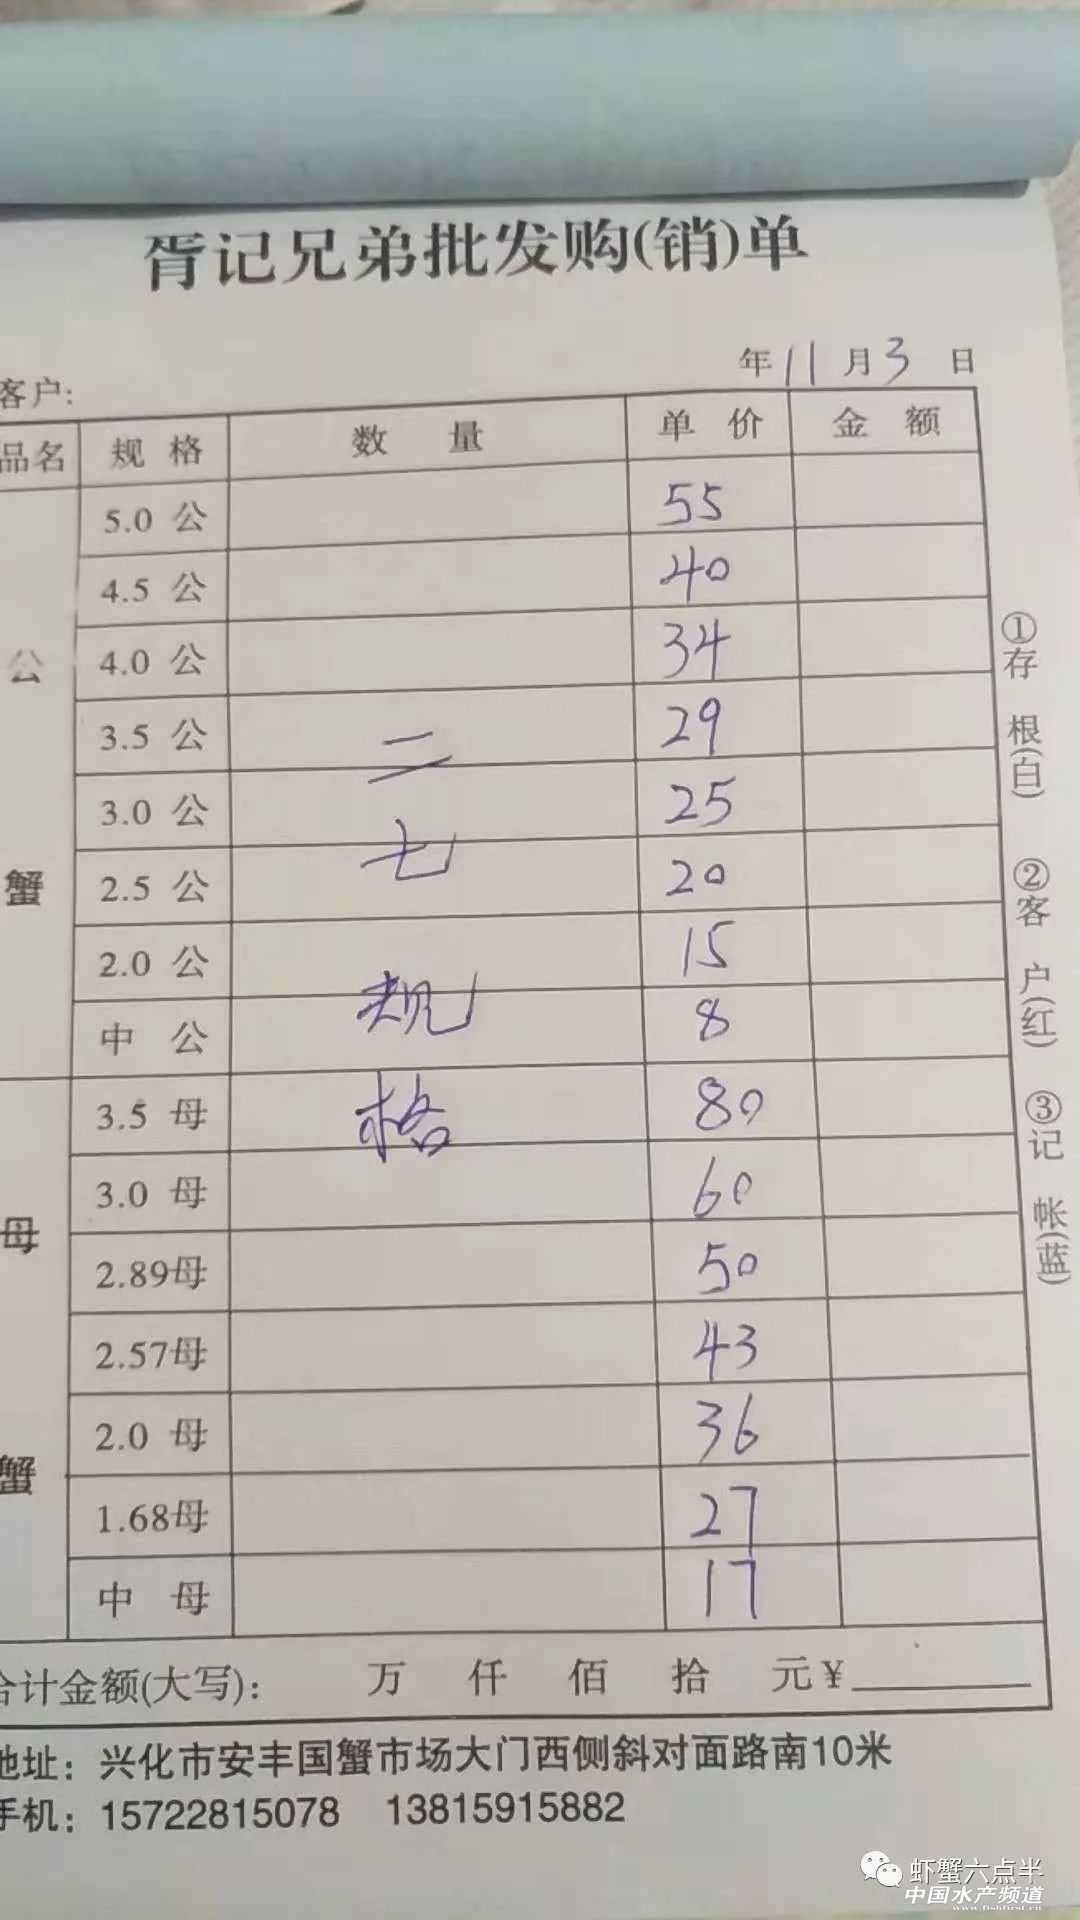 胥记兄弟批发购(销)单
年 11 月 3 日
客户:
品名 规格 数量 单价 金额
公蟹
5.0 公 55
4.5 公 40
4.0 公 34
3.5 公 29
3.0 公 25
2.5 公 20
2.0 公 15
中 公 8
母蟹
3.5 母 80
3.0 母 60
2.89母 50
2.57母 43
2.0 母 36
1.68母 27
中 母 17
二七规格
①存根(白) ②客户(红) ③记帐(蓝)
合计金额(大写): 万 仟 佰 拾 元¥
地址: 兴化市安丰国蟹市场大门西侧斜对面路南10米
手机: 15722815078 13815915882
虾蟹六点半
中国水产频道
www.fishfirst.cn